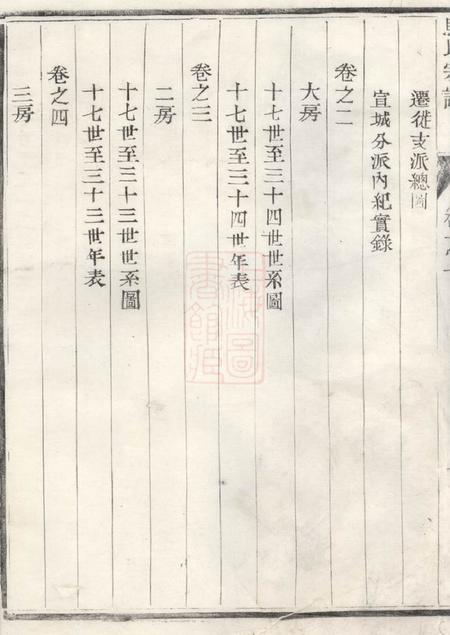 遷徙支派總圖
宣城分派內紀實錄
卷之二
大房
十七世至三十四世世系圖
十七世至三十四世年表
卷之三
二房
十七世至三十三世世系圖
十七世至三十三世年表
卷之四
三房